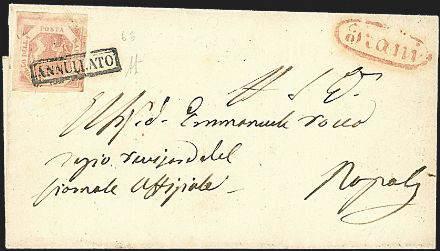 POSTA
ANNULLATO
Trani
A S. E.
Emmanuele Rocco
regio revisore del
Giornale Offiziale
Napoli